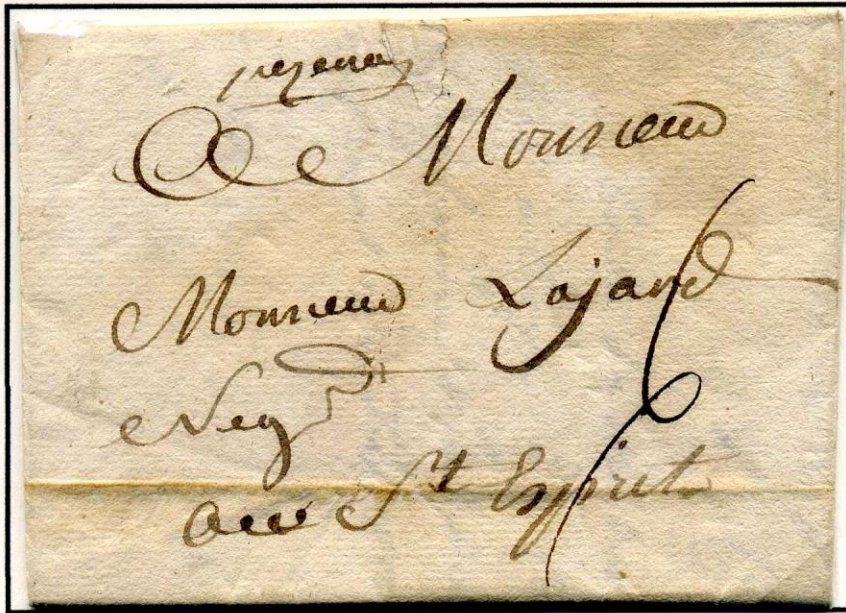 pezenas
A Monsieur
Monsieur Lajard
Neg.t
Au St Esprit
6